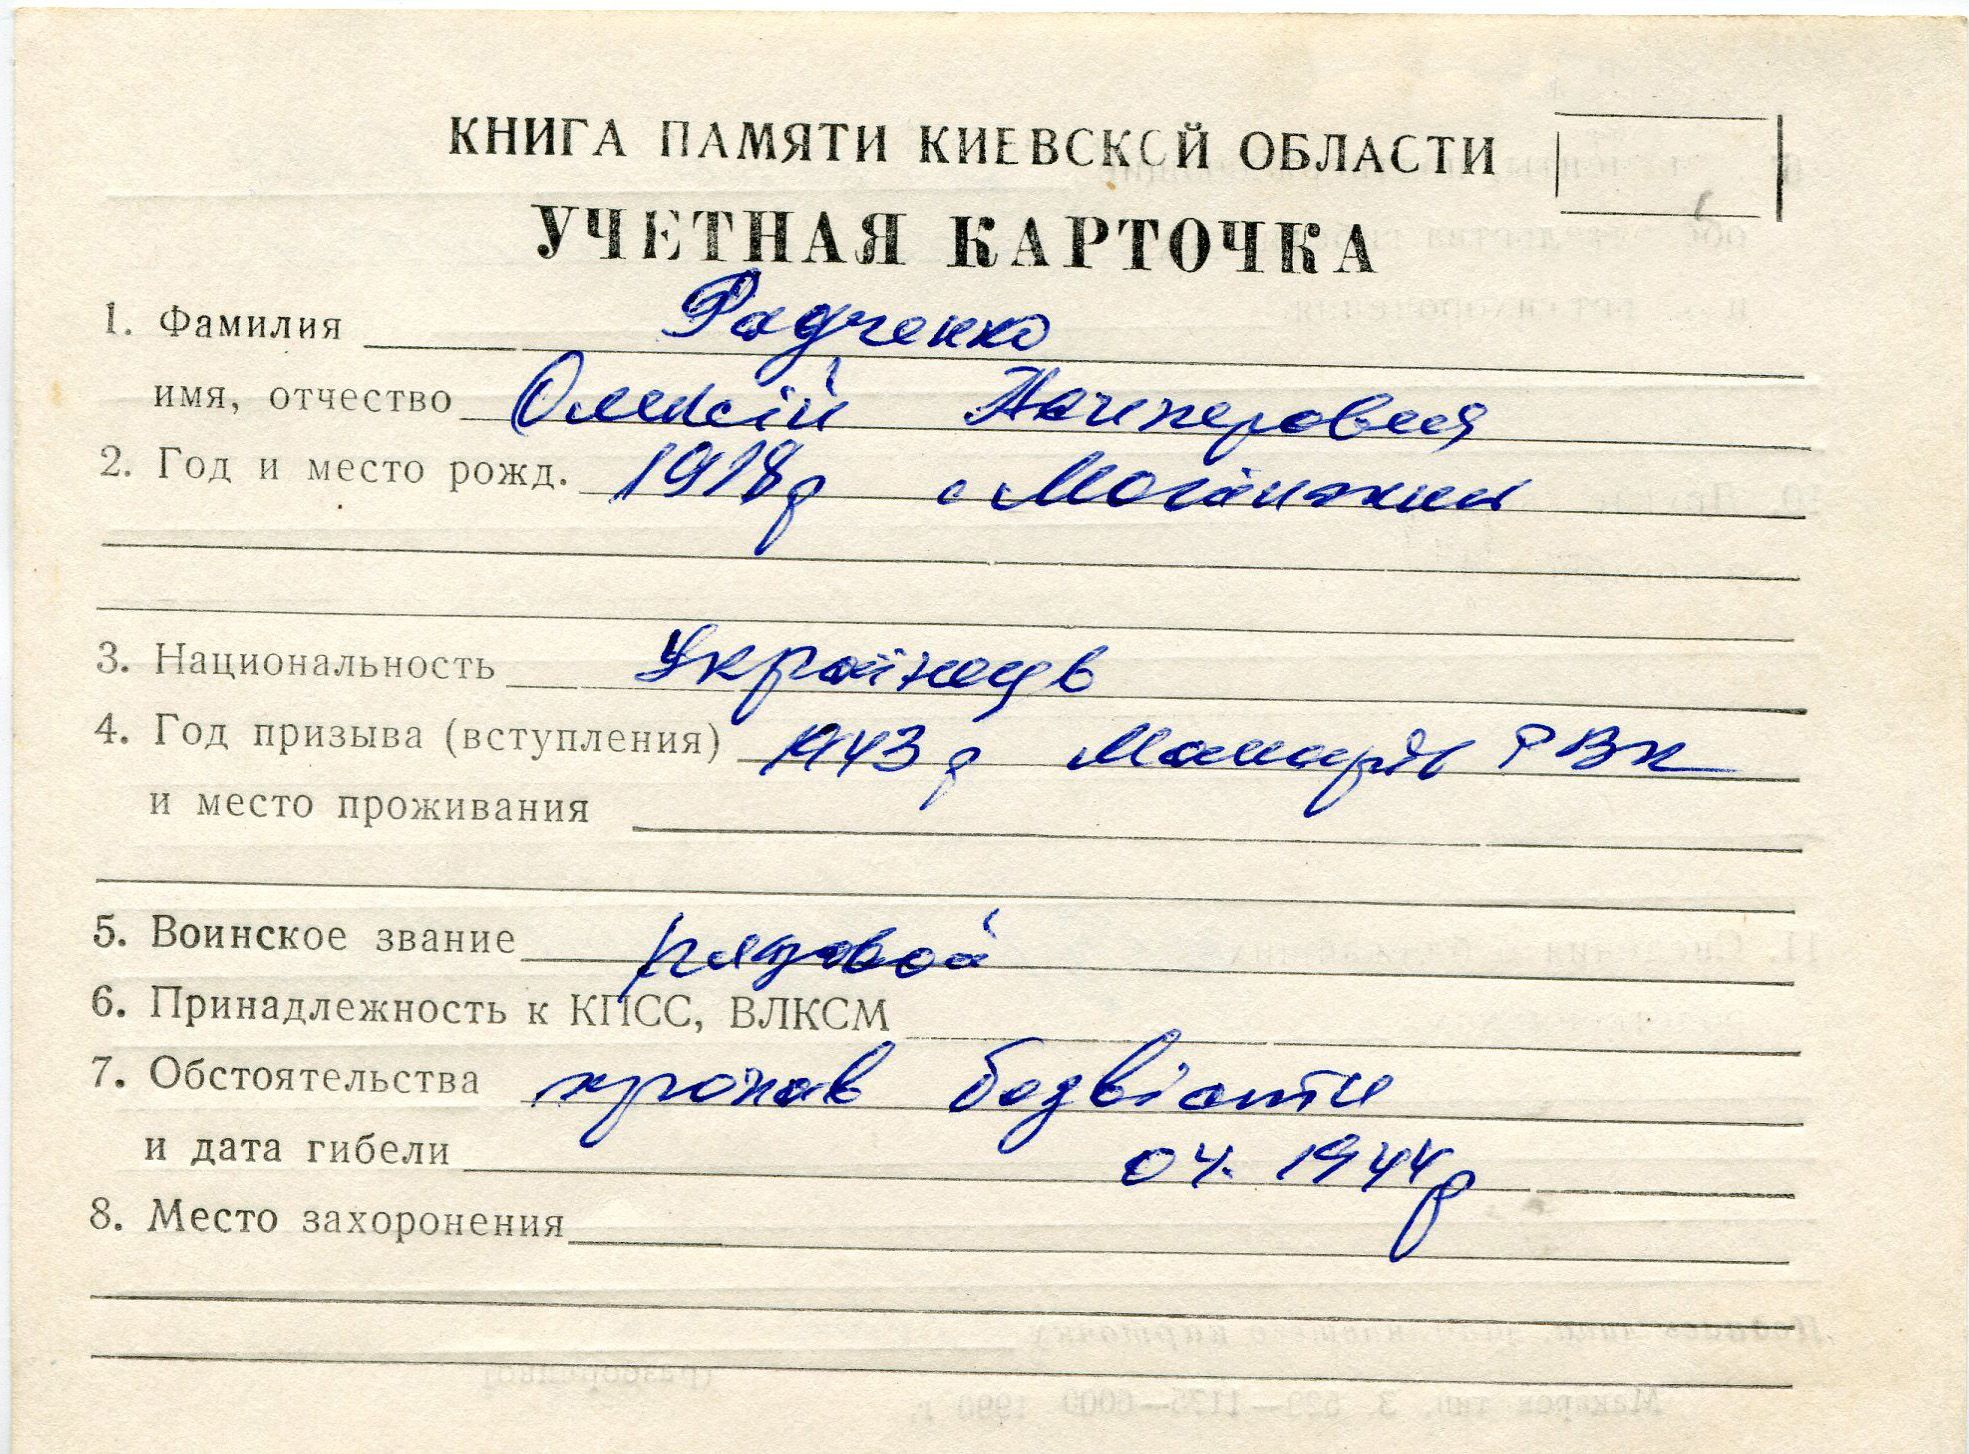 КНИГА ПАМЯТИ КИЕВСКОЙ ОБЛАСТИ
УЧЕТНАЯ КАРТОЧКА
1. Фамилия Радченко
имя, отчество Олексій
2. Год и место рожд. 1918р с
3. Национальность Українець
4. Год призыва (вступления) 1943р Макарів РВК
и место проживания
5. Воинское звание рядовой
6. Принадлежность к КПСС, ВЛКСМ
7. Обстоятельства пропав безвісти
и дата гибели 04. 1944р
8. Место захоронения